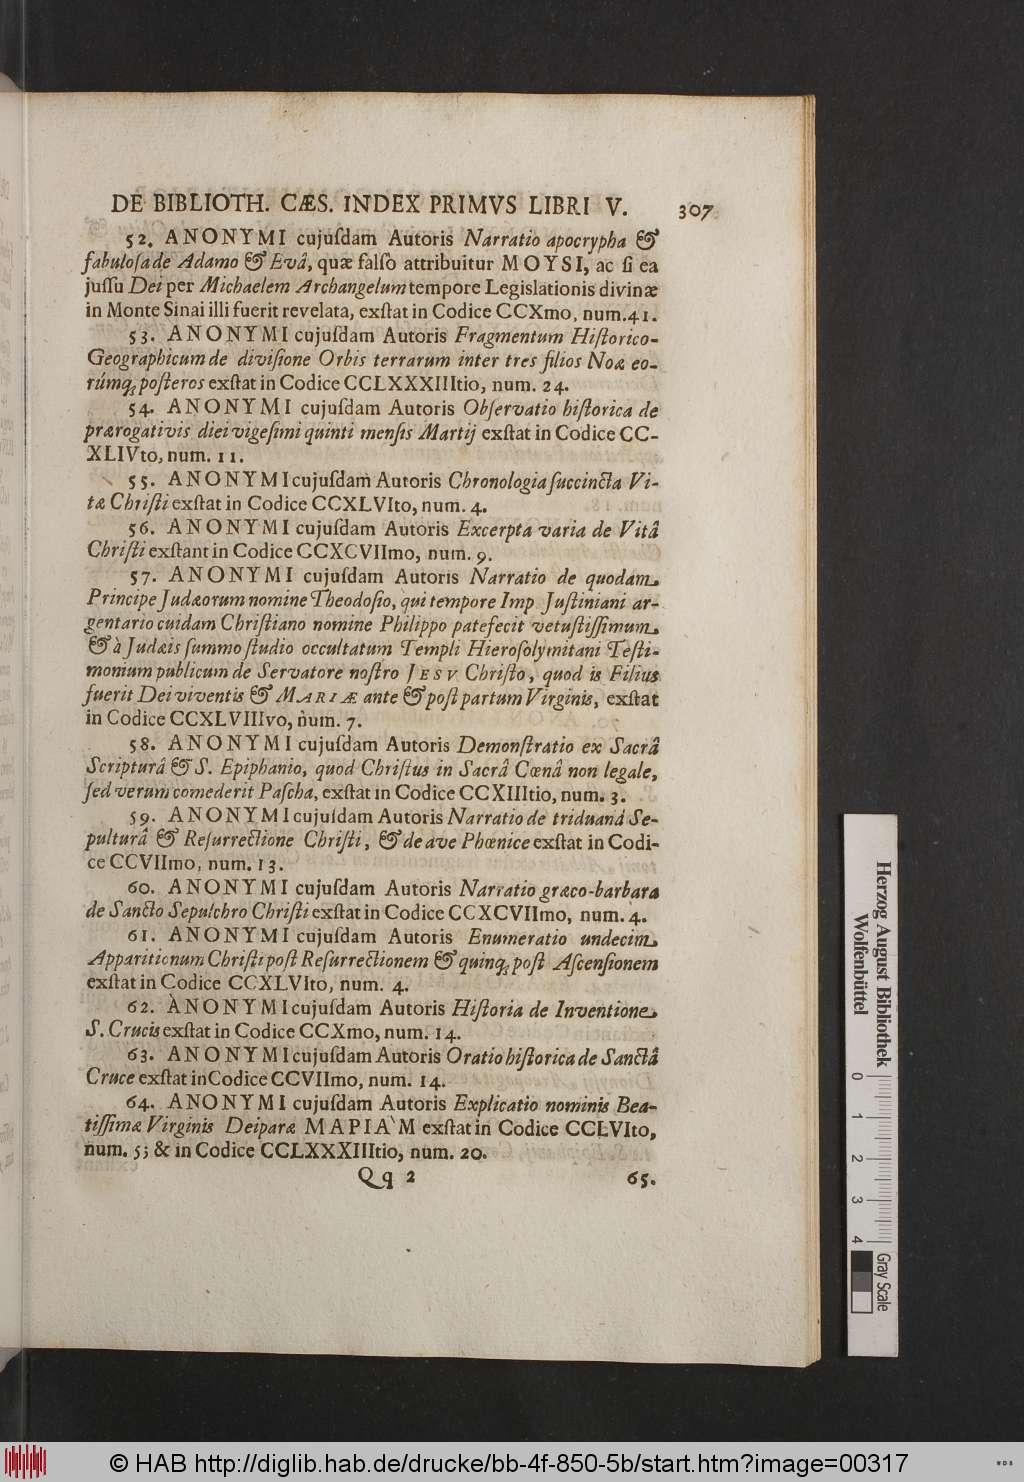 DE BIBLIOTH. CÆS. INDEX PRIMVS LIBRI V. 307
52. ANONYMI cujuſdam Autoris Narratio apocrypha &
fabuloſa de Adamo & Evâ, quæ falſò attribuitur MOYSI, ac ſi ea
juſſu Dei per Michaelem Archangelum tempore Legislationis divinæ
in Monte Sinai illi fuerit revelata, exſtat in Codice CCXmo, num. 41.
53. ANONYMI cujuſdam Autoris Fragmentum Hiſtorico-
Geographicum de diviſione Orbis terrarum inter tres filios Noæ eo-
rúmq; poſteros exſtat in Codice CCLXXXIIItio, num. 24.
54. ANONYMI cujuſdam Autoris Obſervatio hiſtorica de
prærogativis diei vigeſimi quinti menſis Martij exſtat in Codice CC-
XLIVto, num. 11.
55. ANONYMI cujuſdam Autoris Chronologia ſuccincta Vi-
tæ Chriſti exſtat in Codice CCXLVIto, num. 4.
56. ANONYMI cujuſdam Autoris Excerpta varia de Vitâ
Chriſti exſtant in Codice CCXCVIImo, num. 9.
57. ANONYMI cujuſdam Autoris Narratio de quodam
Principe Judæorum nomine Theodoſio, qui tempore Imp. Juſtiniani ar-
gentario cuidam Chriſtiano nomine Philippo patefecit vetuſtiſſimum
& à Judæis ſummo ſtudio occultatum Templi Hieroſolymitani Teſti-
monium publicum de Servatore noſtro JESV Chriſto, quod is Filius
fuerit Dei viventis & MARIÆ ante & poſt partum Virginis, exſtat
in Codice CCXLVIIIvo, num. 7.
58. ANONYMI cujuſdam Autoris Demonſtratio ex Sacrâ
Scripturâ & S. Epiphanio, quod Chriſtus in Sacrâ Cœnâ non legale,
ſed verum comederit Paſcha, exſtat in Codice CCXIIItio, num. 3.
59. ANONYMI cujuſdam Autoris Narratio de triduanâ Se-
pulturâ & Reſurrectione Chriſti, & de ave Phœnice exſtat in Codi-
ce CCVIImo, num. 13.
60. ANONYMI cujuſdam Autoris Narratio græco-barbara
de Sancto Sepulchro Chriſti exſtat in Codice CCXCVIImo, num. 4.
61. ANONYMI cujuſdam Autoris Enumeratio undecim
Apparitionum Chriſti poſt Reſurrectionem & quinq; poſt Aſcenſionem
exſtat in Codice CCXLVIto, num. 4.
62. ANONYMI cujuſdam Autoris Hiſtoria de Inventione
S. Crucis exſtat in Codice CCXmo, num. 14.
63. ANONYMI cujuſdam Autoris Oratio hiſtorica de Sanctâ
Cruce exſtat in Codice CCVIImo, num. 14.
64. ANONYMI cujuſdam Autoris Explicatio nominis Bea-
tiſſimæ Virginis Deiparæ ΜΑΡΙΑ`Μ exſtat in Codice CCLVIto,
num. 5; & in Codice CCLXXXIIItio, num. 20.
Qq 2 65.
Herzog August Bibliothek
Wolfenbüttel
0 1 2 3 4
Gray Scale
© HAB http://diglib.hab.de/drucke/bb-4f-850-5b/start.htm?image=00317